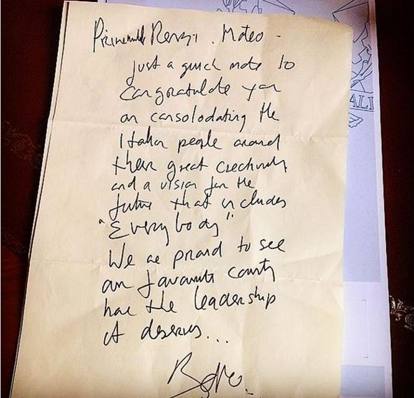 Renzi. Mateo -
Just a quick note to
congratulate you
on consolodating the
Italian people around
their great
and a vision for the
future that includes
"Everybody"
We are proud to see
our favourite country
have the leadership
it deserves...
ALI